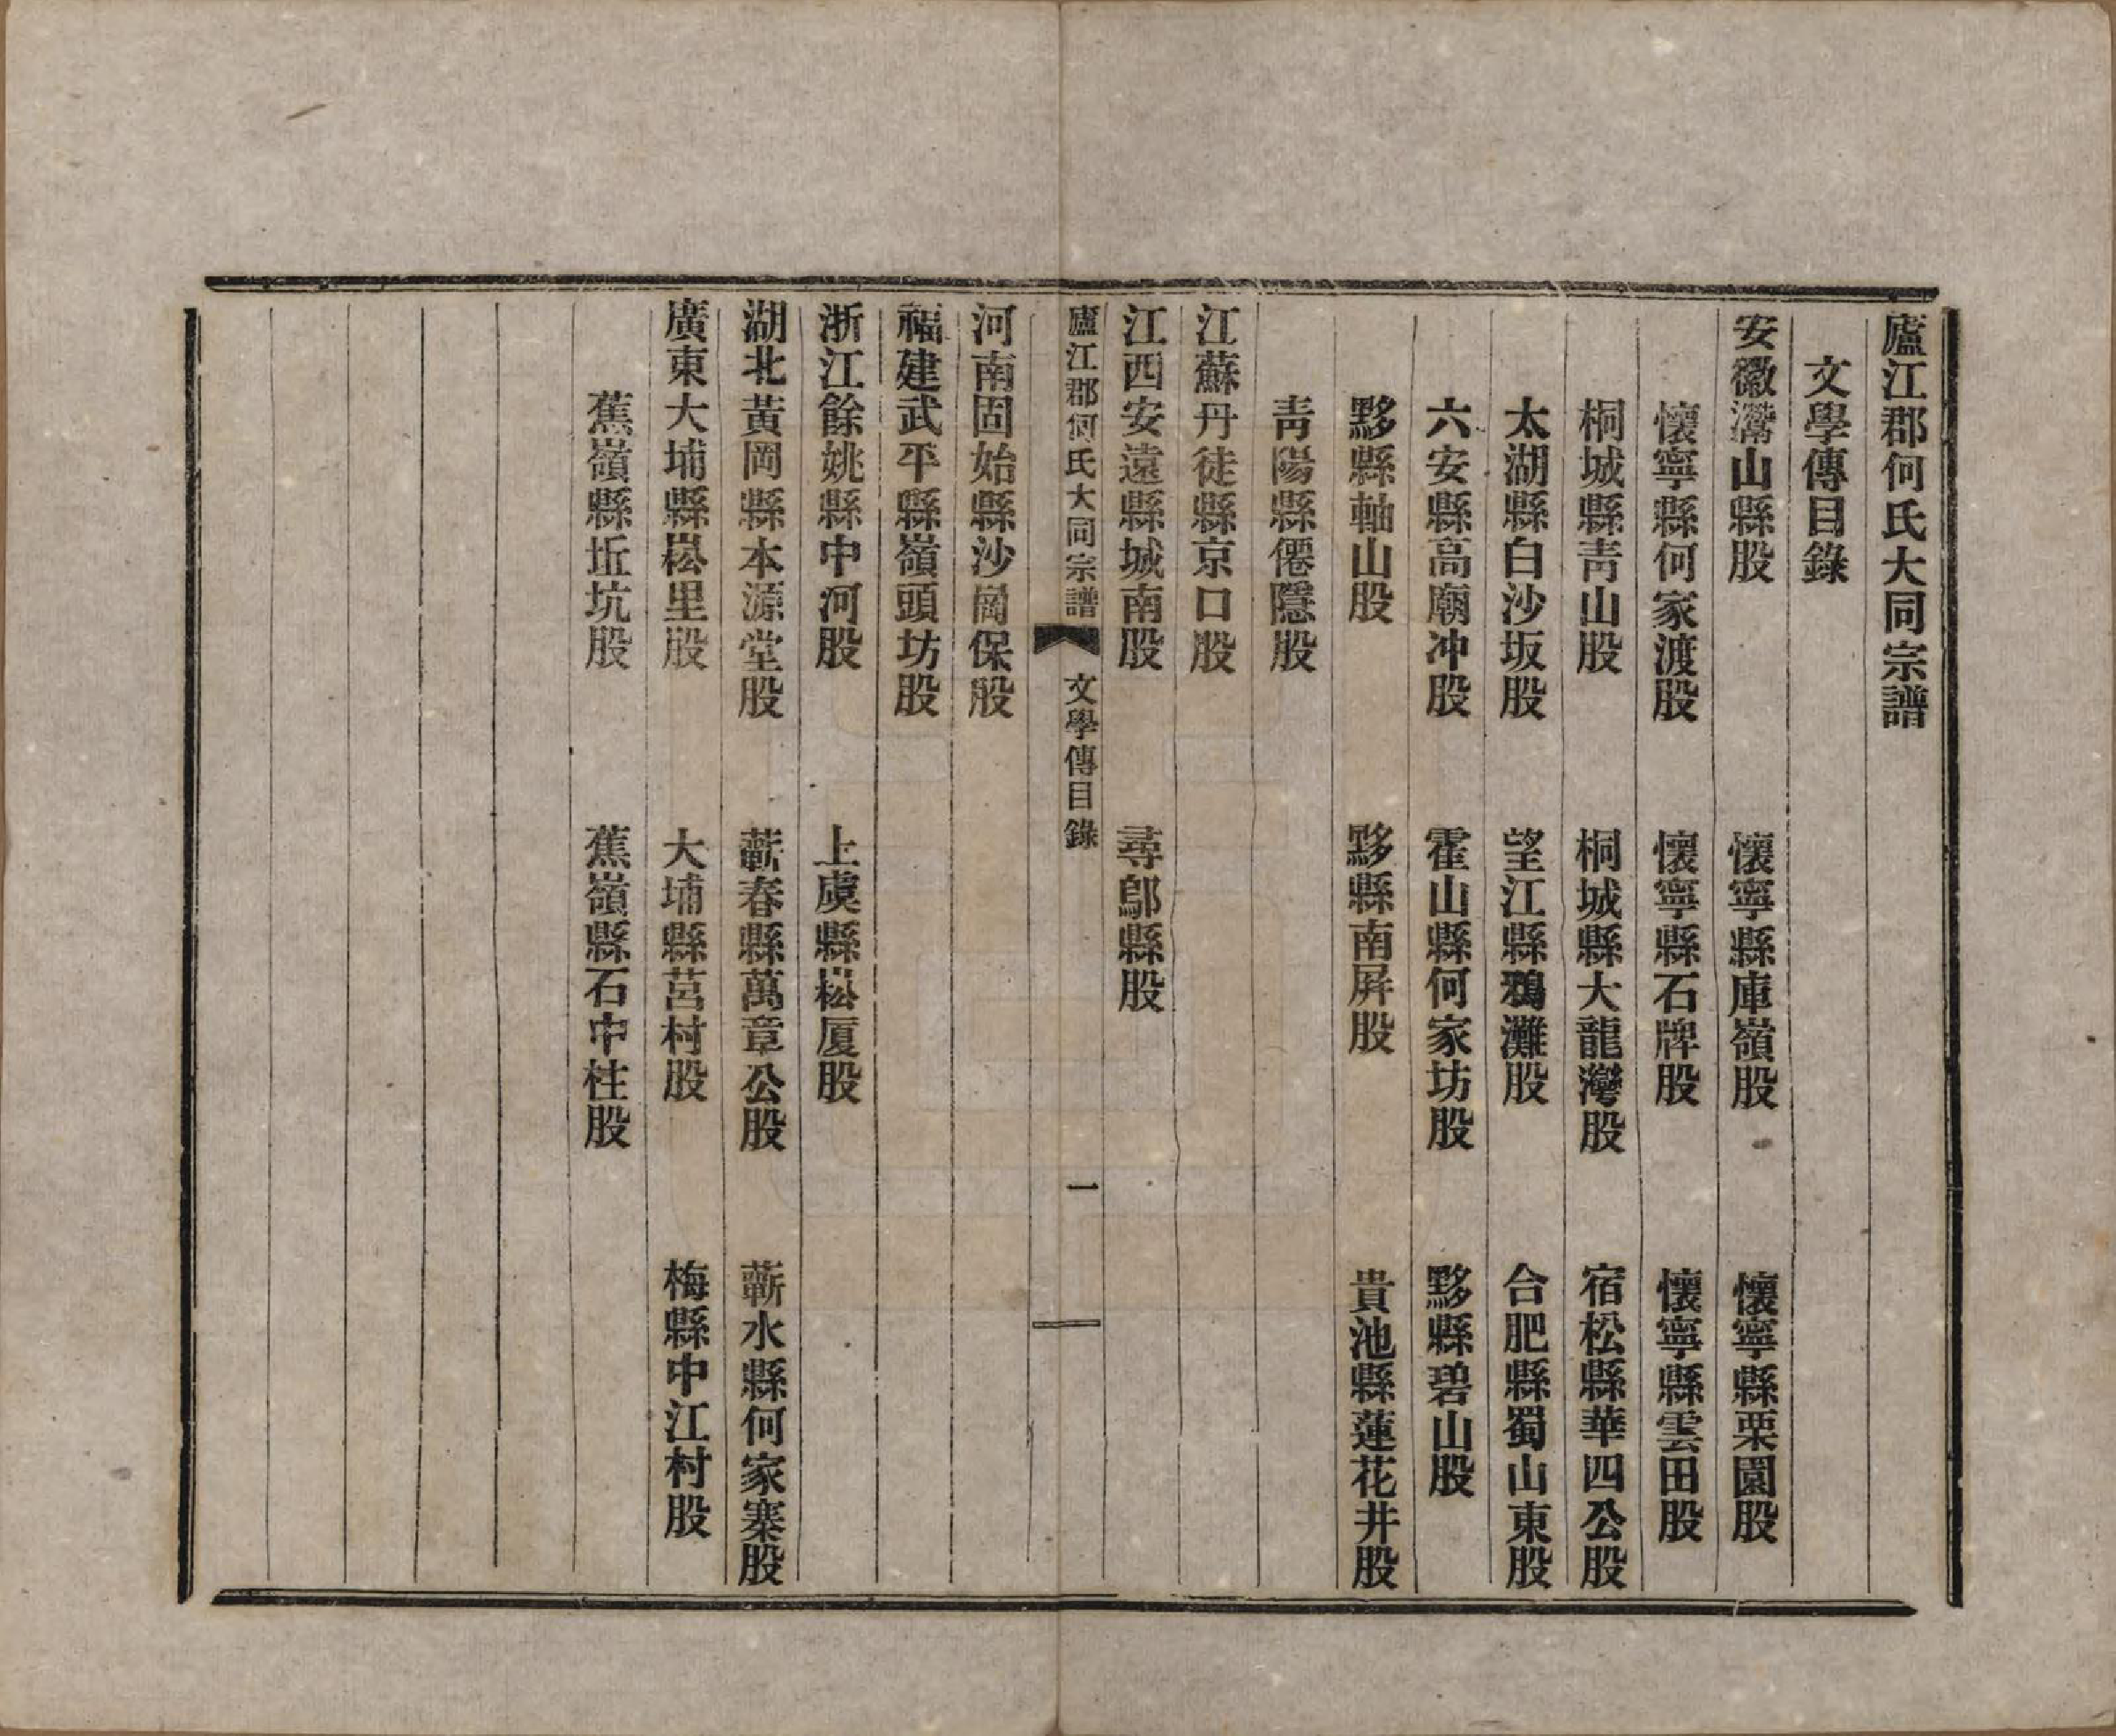 廬江郡何氏大同宗譜
文學傳目錄
安徽灊山縣股　懷寧縣庫嶺股　懷寧縣栗園股
懷寧縣何家渡股　懷寧縣石牌股　懷寧縣雲田股
桐城縣靑山股　桐城縣大龍灣股　宿松縣華四公股
太湖縣白沙坂股　望江縣鴉灘股　合肥縣蜀山東股
六安縣高廟冲股　霍山縣何家坊股　黟縣碧山股
黟縣軸山股　黟縣南屛股　貴池縣蓮花井股
靑陽縣僊隱股
江蘇丹徒縣京口股
江西安遠縣城南股　尋鄔縣股
廬江郡何氏大同宗譜　文學傳目錄　一
河南固始縣沙崗保股
福建武平縣嶺頭坊股
浙江餘姚縣中河股　上虞縣崧厦股
湖北黃岡縣本源堂股　蘄春縣萬章公股　蘄水縣何家寨股
廣東大埔縣崧里股　大埔縣莒村股　梅縣中江村股
蕉嶺縣坵坑股　蕉嶺縣石中柱股